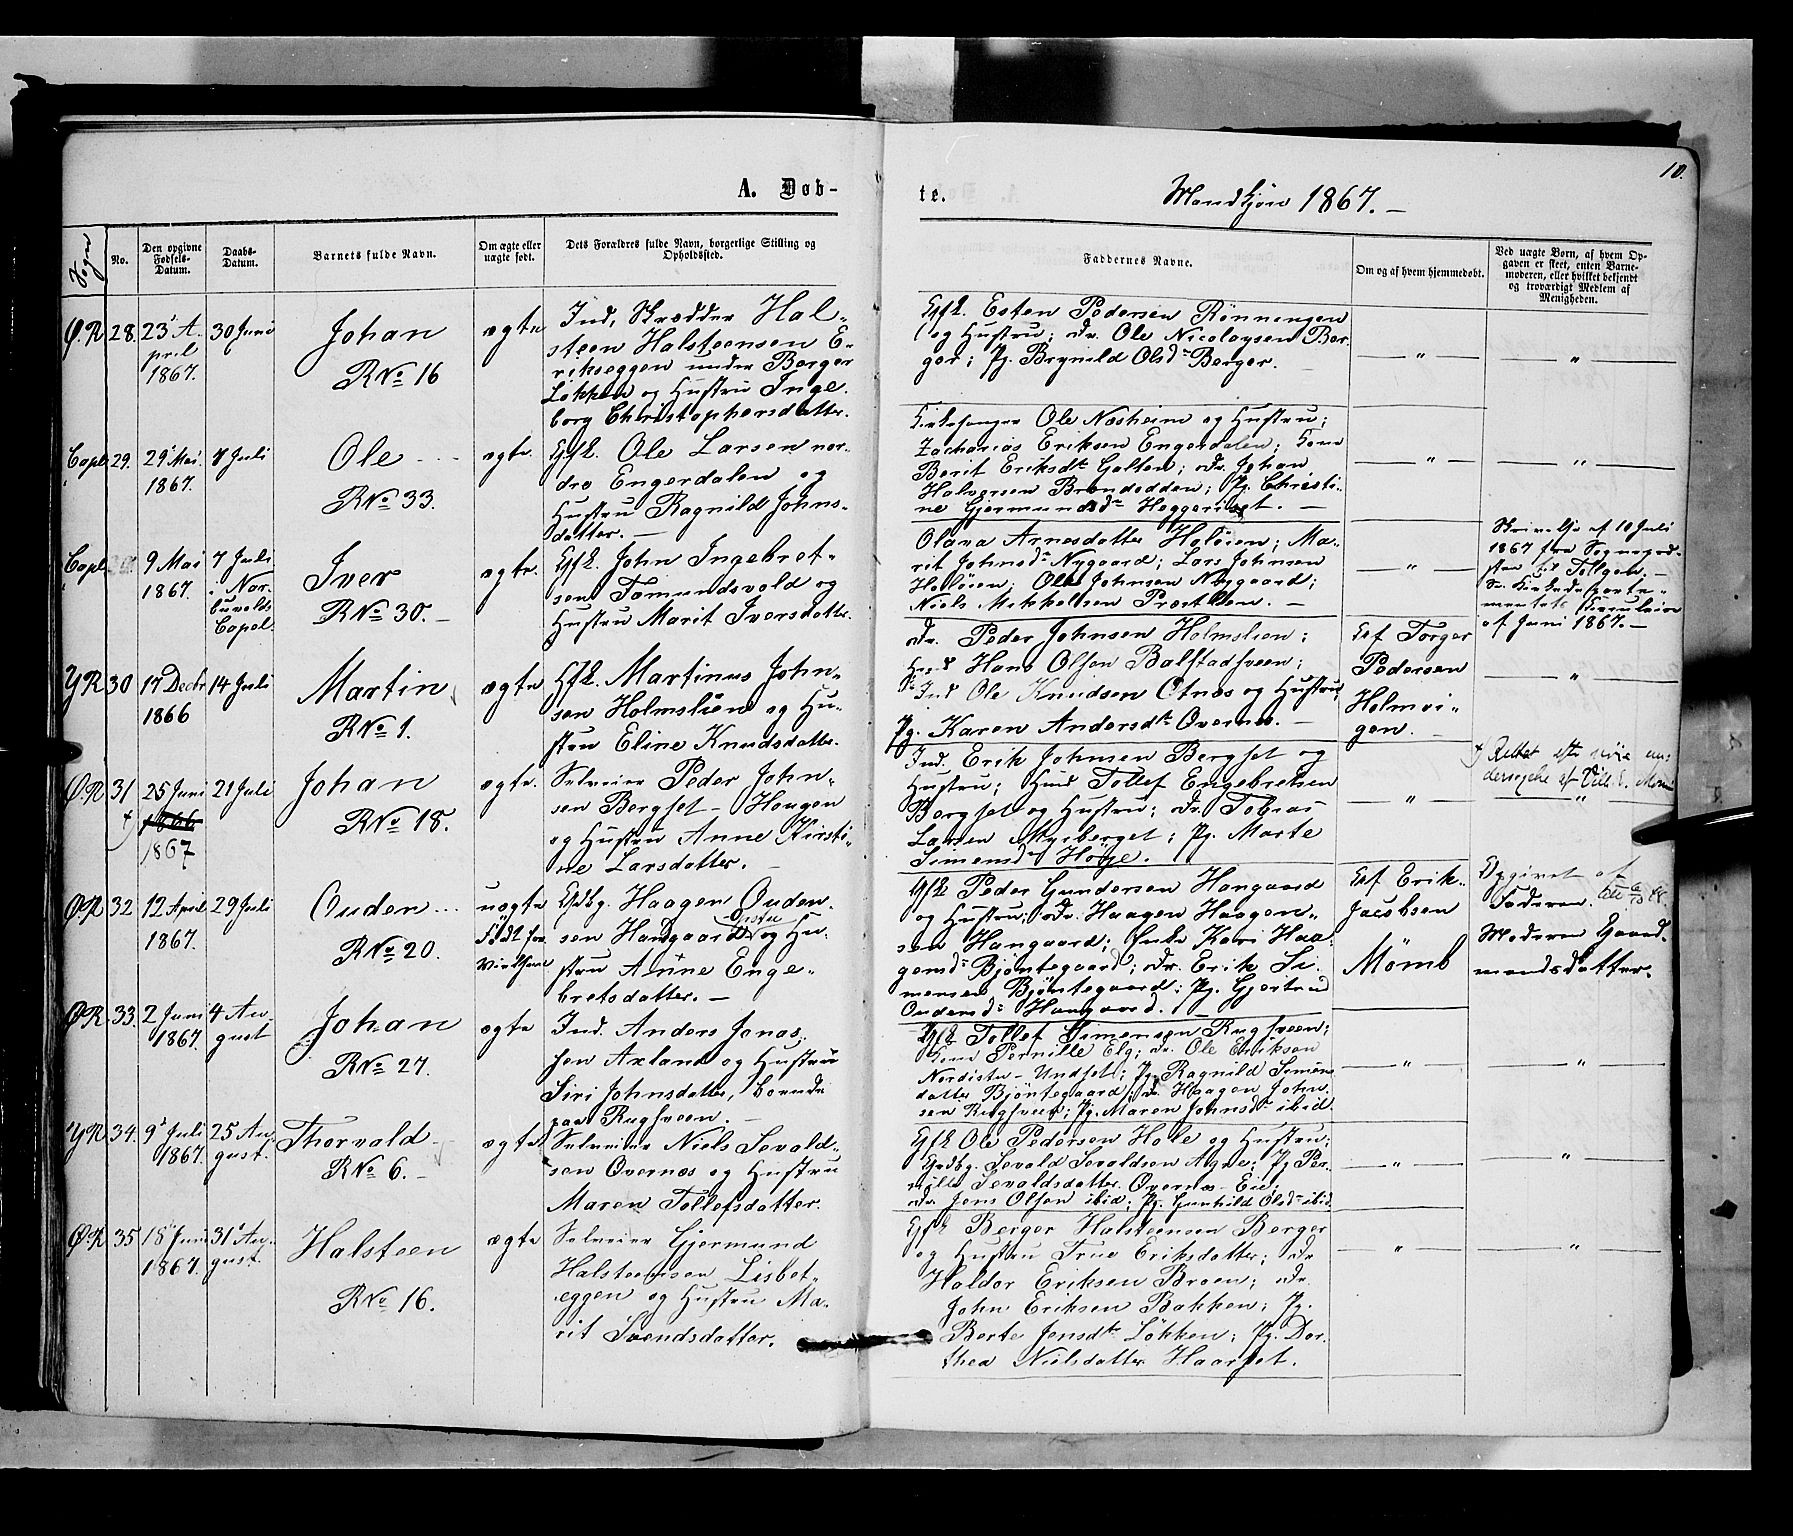 10.
A. Døb-
te.
Mandkjøn 1867. —
Sogn
No.
Den opgivne Fødsels-Datum.
Daabs-Datum.
Barnets fulde Navn.
Om ægte eller uægte født.
Dets Forældres fulde Navn, borgerlige Stilling og Opholdssted.
Faddernes Navne.
Om og af hvem hjemmedøbt.
Ved uægte Børn, af hvem Opgaven er skeet, enten Barnemoderen, eller hvilket bekjendt og troværdigt Medlem af Menigheden.
Ø.R 28. 23' April 1867. 30 Juni
Johan
R No 16
ægte
Ind, Skrædder Hal-
steen Halsteensen E-
rikseggen under Berger
Løkken og Hustru Inge-
borg Christophersdatter.
Gfk. Esten Pedersen Rønningen
og Hustru; Dr. Ole Nicolaysen Ber-
ger; Pg. Brynild Olsdr Berger.
"
"
Capl. 29. 29' Mai 1867. 7 Juli
Ole
R No 33.
ægte.
Gfk. Ole Larsen nor-
dre Engerdalen og
Hustru Ragnild Johns-
datter. —
Kirkesanger Ole Næsheim og Hustru;
Zacharias Eriksen Engerdalen; Kone
Berit Eriksdtr Galten; Dr. Johan
Halvorsen Brændodden; Pg. Christi-
ne Gjermundsdtr Heggeriset. —
"
"
Capl. 9 Mai 1867. 7 Juli i Nor-buvolds Capel.
Iver
R No 30. —
ægte.
Gfk. John Ingebret-
sen Tomundsvold og
Hustru Marit Iversdatter.
Olava Arnesdatter Holøien; Ma-
rit Johnsdtr Nygaard; Lars Johnsen
Holøien; Ole Johnsen Nygaard;
Niels Mikkelsen Præstlien. —
"
Skrivelse af 10 Juli
1867 fra Sognepræ-
sten til Tolgen. —
Se Kirkedeparte-
mentets Circulaire
af Juni 1867. —
Y R 30 17 Decbr 1866 14 Juli
Martin
R No 1.
ægte
Gfk. Martinus John-
sen Holmslien og Hu-
stru Eline Knudsdatter.
Dr. Peder Johnsen Holmslien;
Hans Olsen Balstadsveen;
Ind Ole Knudsen Otnes og Hustru
Pg. Karen Andersdtr Overnæs. —
Gbf Torger
Pedersen
Holmvi-
gen. —
"
Ø.R 31 25 Juni 1866 1867 21 Juli
Johan
R No 18.
ægte.
Selveier Peder John-
sen Bergset-Haugen
og Hustru Anne Kirsti-
ne Larsdatter. —
Ind. Erik Johnsen Bergset og
Hustru; Hmd Tollef Engebretsen
Bergset og Hustru; Dr. Tobias
Larsen Myrberget; Pg. Marte
Simensdtr Høye.
"
+) Rettet efter nøie un-
dersøgelse
"
Ø.R 32 12 April 1867. 29 Juli
Ouden
R No 20.
uægte
Født før
Vielsen
Gdbg. Haagen Ouden-
sen Hangaard og Hu-
stru Anne Enge-
bretsdatter. —
Gfk Peder Gundersen Hangaard
og Hustru; Dr. Haagen Haagen-
sen Hangaard; Enke Kari Haa-
gensdtr Bjøntegaard; Dr. Erik Si-
mensen Bjøntegaard; Pg. Gjertrud
Oudensdtr Hangaard. —
Gbf Erik
Jacobsen
Momb
Opgivet af
Faderen.
Moderen Gaard-
mandsdatter.
Ø.R. 33. 2 Juni 1867. 4 August
Johan
R No 27.
ægte
Ind. Anders Jonas-
sen Axland og Hustru
Siri Johnsdatter, boende
paa Rugsveen. —
Gfk Tollef Simensen Rugsveen;
Kone Pernille Elg; Dr. Ole Eriksen
Nordistu-Undset; Pg. Ragnild Simens-
datter Bjøntegaard; Dr. Haagen John-
sen Rugsveen; Pg. Maren Johnsdtr ibid.
"
"
Y R. 34. 9' Juli 1867. 25 August.
Thorvald
R No 6. —
ægte
Selveier Niels Sevald-
sen Overnæs og Hustru
Maren Tollefsdatter.
Gfk Ole Pedersen Hole og Hustru;
Gdbg. Sevald Sevaldsen Agne; Pg Per-
nille Sevaldsdatter Overnæs-Eie;
Dr. Jens Olsen ibid; Pg. Gunhild Olsdtr ibid.
"
"
Ø.R 35 18' Juni 1867. 31' August.
Halsteen
R No 16.
ægte
Selveier Gjermund
Halsteensen Lisbet-
eggen og Hustru Ma-
rit Svendsdatter.
Gfk Berger Halsteensen Berger
og Hustru True Eriksdatter; Dr
Haldor Eriksen Broen; Dr.
John Eriksen Bakken; Pg.
Berte Jensdtr Løkken; Pg. Dor-
thea Nielsdatter Haarset.
"
"